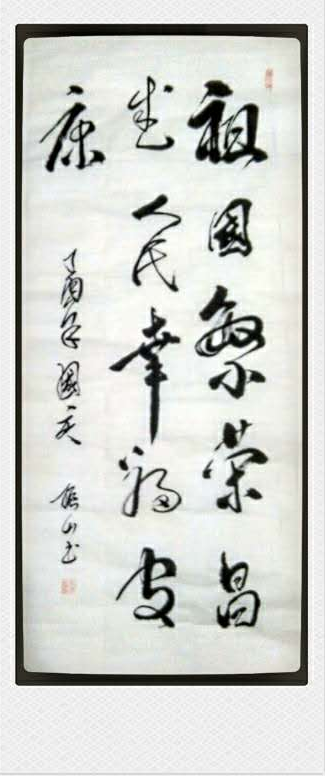 祖國繁荣昌
盛人民幸福安
康
丁酉年國庆
山书